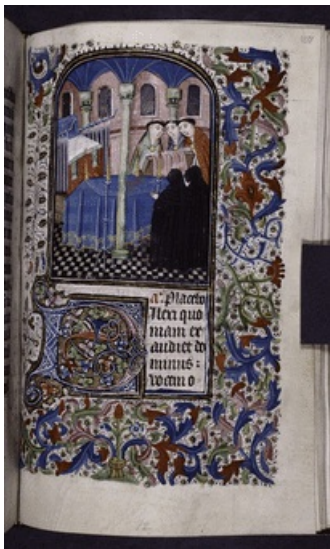 a. Placebo
Dilexi quo
niam ex
audiet do
minus :
vocem o